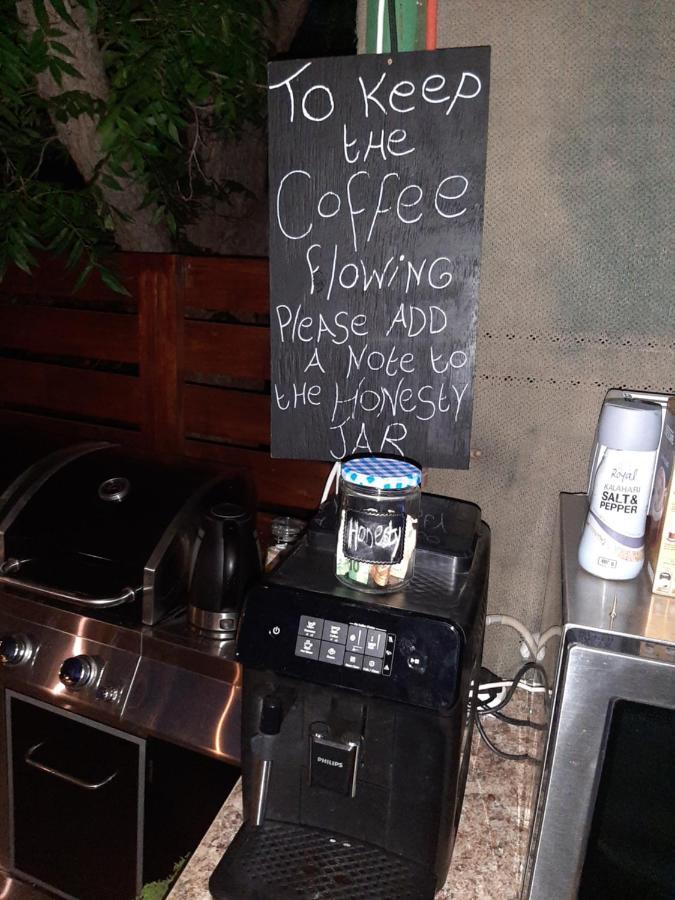 To Keep
the
Coffee
flowing
Please ADD
A Note to
the Honesty
JAR
Honesty
PHILIPS
Royal
KALAHARI
SALT&
PEPPER